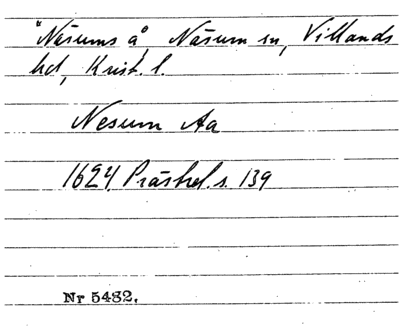 "Näsums å, Näsum sn, Villands
hd, Krist. l.
Nesum Aa
1624 Prästrel. s. 139
Nr 5482.